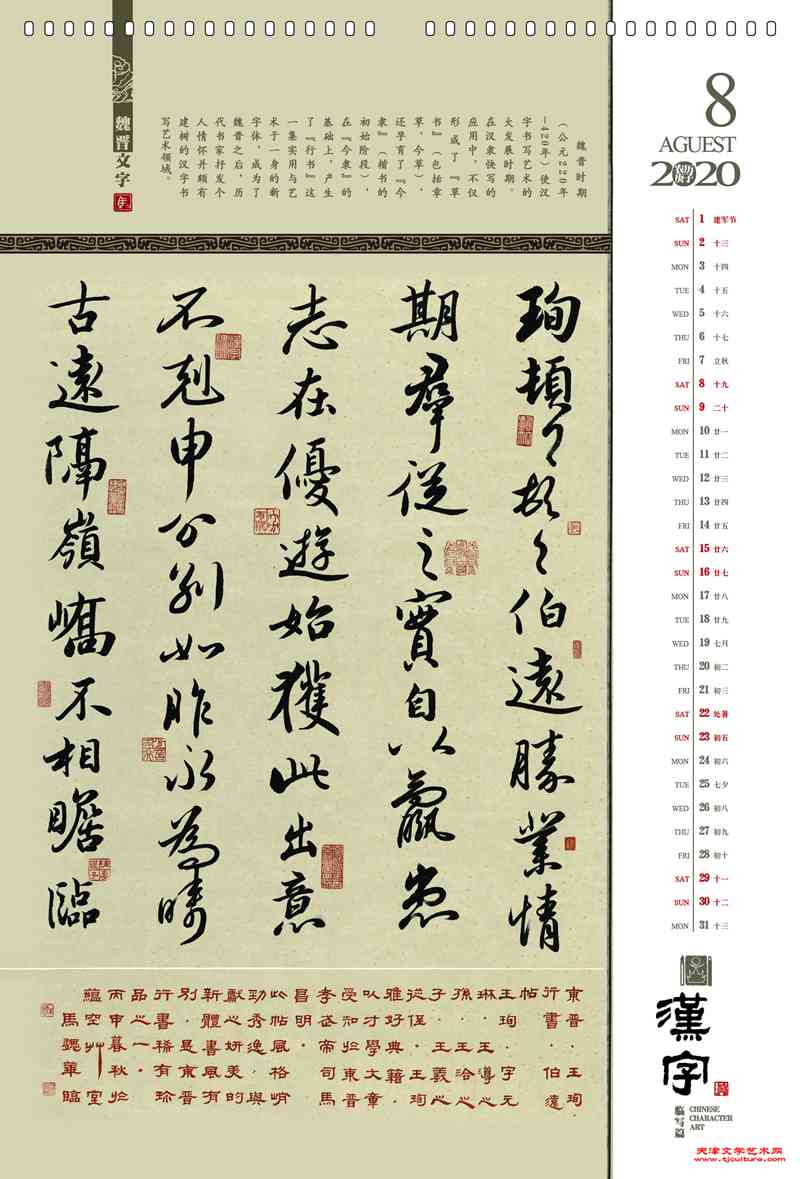 魏晋文字
魏晋时期
（公元220年
—420年）使汉
字书写艺术的
大发展时期。
在汉隶快写的
应用中，不仅
形成了『草
书』（包括章
草，今草），
还孕育了『今
隶』（楷书的
初始阶段），
在『今隶』的
基础上，产生
了『行书』这
一集实用与艺
术于一身的新
字体，成为了
魏晋之后，历
代书家抒发个
人情怀并颇有
建树的汉字书
写艺术领域。
8
AGUEST
2020
农历庚子
SAT 1 建军节
SUN 2 十三
MON 3 十四
TUE 4 十五
WED 5 十六
THU 6 十七
FRI 7 立秋
SAT 8 十九
SUN 9 二十
MON 10 廿一
TUE 11 廿二
WED 12 廿三
THU 13 廿四
FRI 14 廿五
SAT 15 廿六
SUN 16 廿七
MON 17 廿八
TUE 18 廿九
WED 19 七月
THU 20 初二
FRI 21 初三
SAT 22 处暑
SUN 23 初五
MON 24 初六
TUE 25 七夕
WED 26 初八
THU 27 初九
FRI 28 初十
SAT 29 十一
SUN 30 十二
MON 31 十三
珣頓々首々伯遠勝業情
期群從之寶自以羸患
志在優遊始獲此出意
不剋申分别如昨永為疇
古遠隔嶺嶠不相瞻臨
東晋··王珣
行書··伯遠
帖
王珣·字元
琳·王導之
孫·王洽之
子·王羲之
從侄·王珣
雅好典籍·
以才學文章
受知於東晋
孝武帝司馬
昌明·
此帖風格峭
勁秀逸·與
獻之妍美的
新體書風有
别·是東晋
行書稀有珍
品之一·
丙申暮秋於
蘊空艸堂
馬魏華臨
漢字
临写篇
CHINESE
CHARACTER
ART
天津文学艺术网
www.tjculture.com